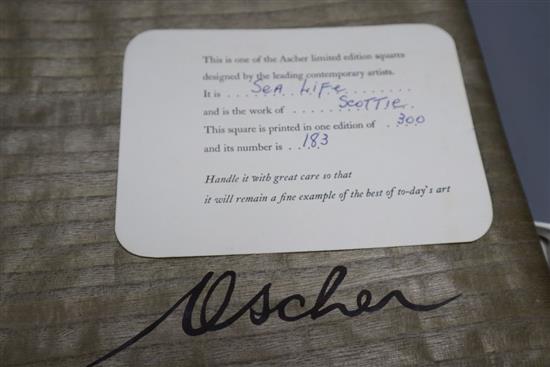 This is one of the Ascher limited edition squares
designed by the leading contemporary artists.
It is . . Sea Life . . . . . . . . .
and is the work of . . . . . . Scottie.
This square is printed in one edition of . 300
and its number is . . 183
Handle it with great care so that
it will remain a fine example of the best of to-day's art
Ascher